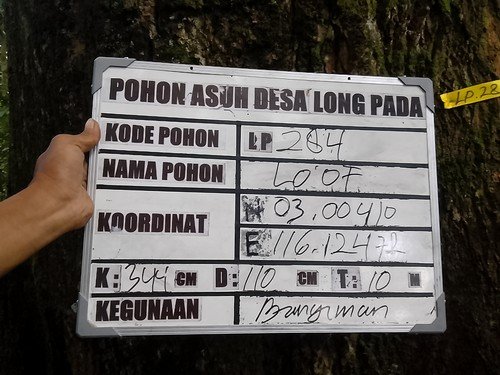 POHON ASUH DESA LONG PADA
KODE POHON LP 284
NAMA POHON LO'OF
KOORDINAT N 03.00410
E 116.12472
K: 344 CM D: 110 CM T: 10 M
KEGUNAAN Bangunan
LP. 28